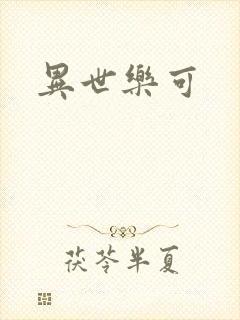 異世樂可
茯苓半夏